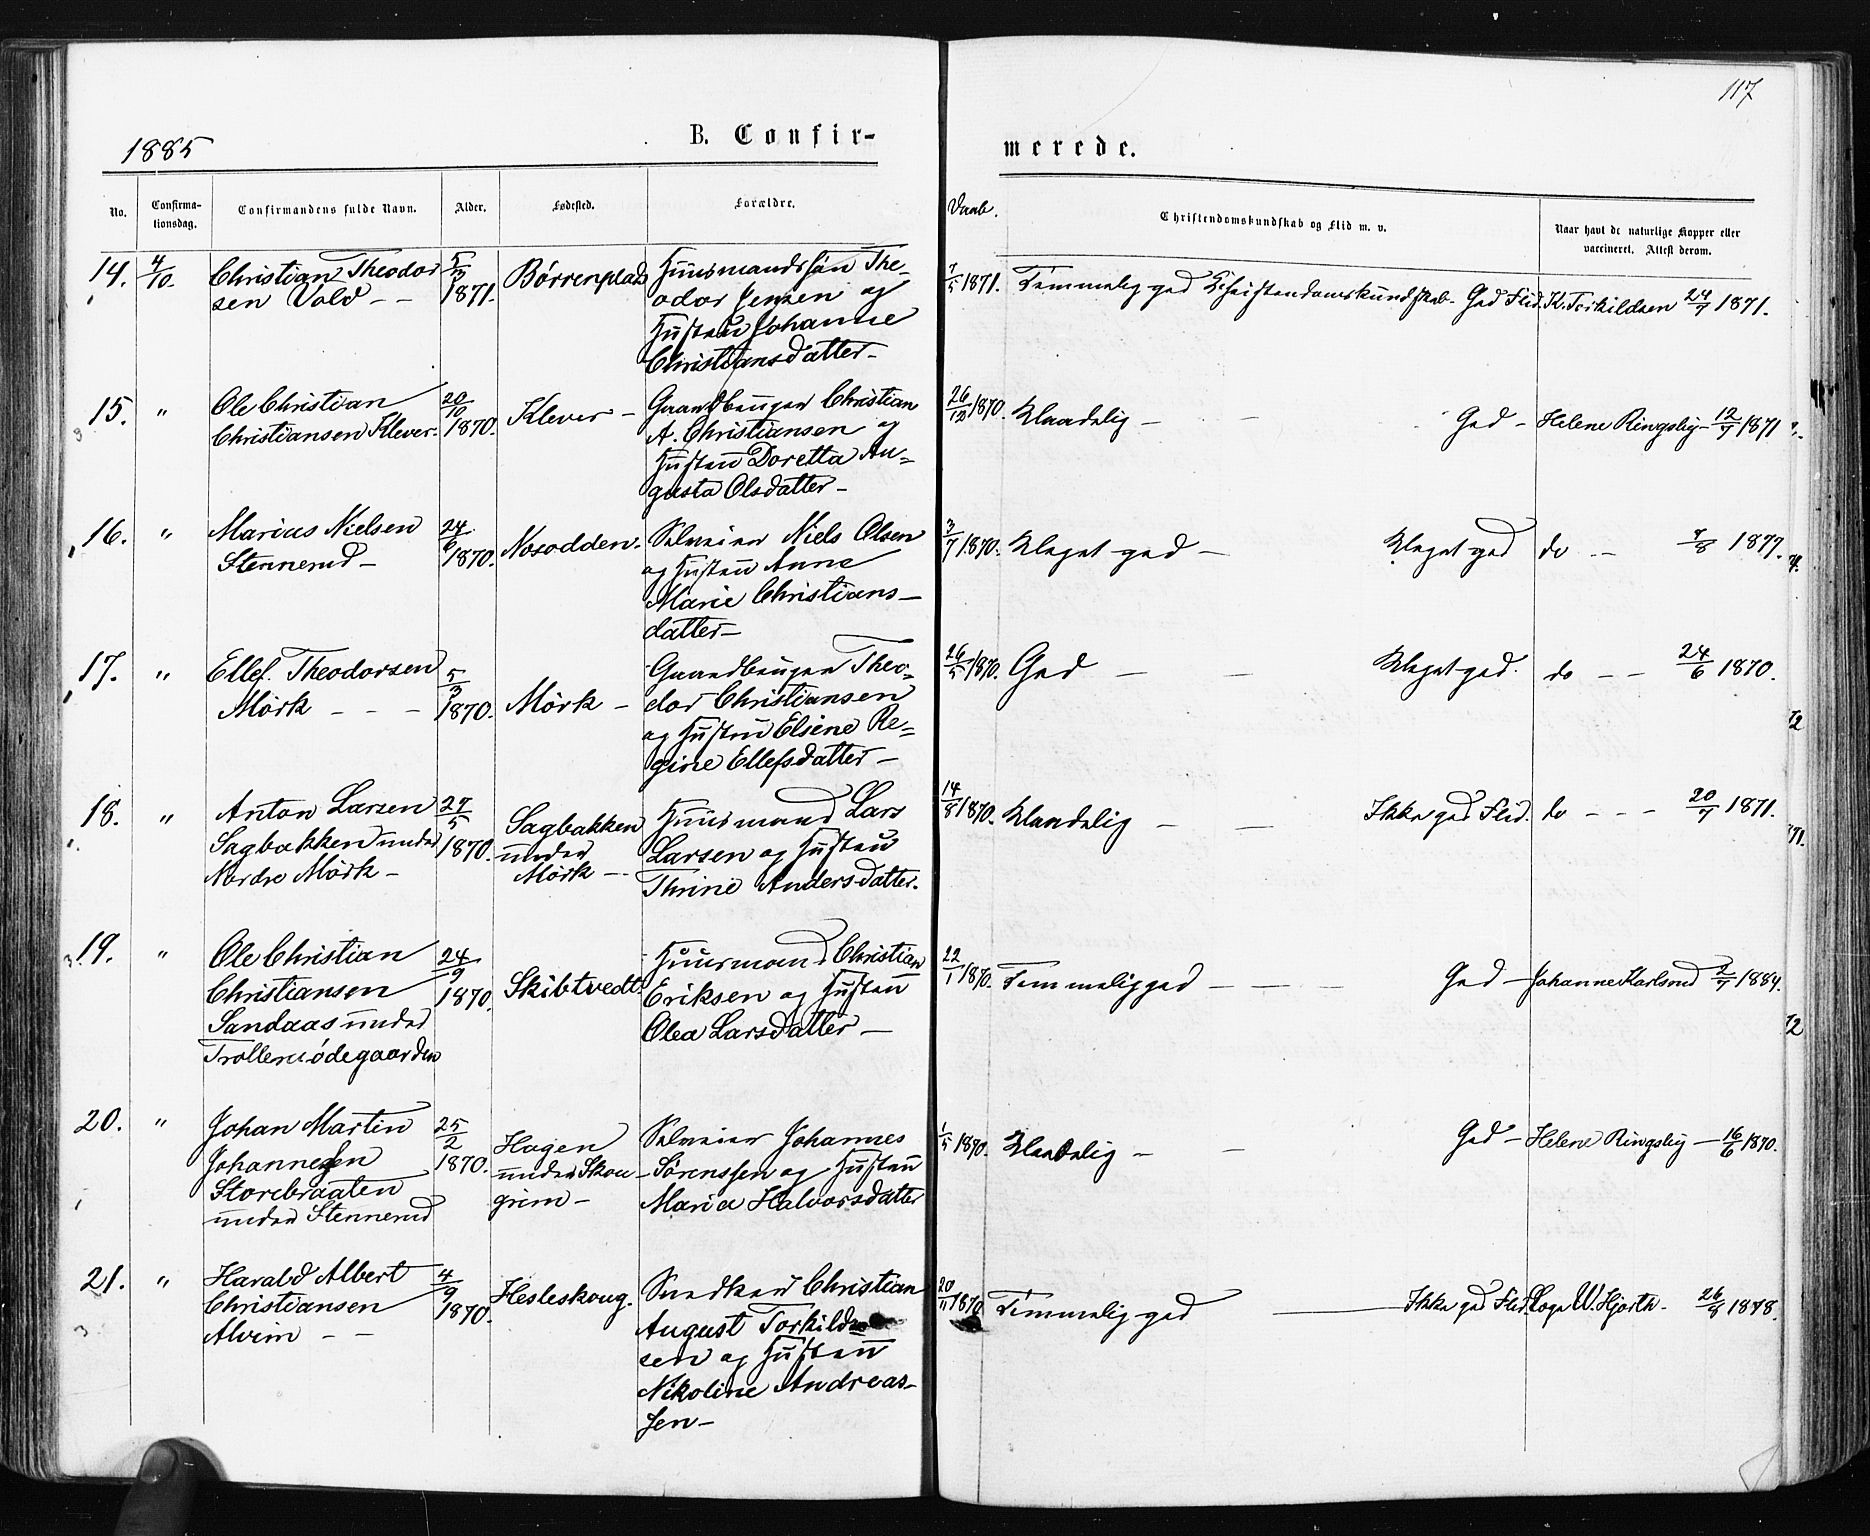 117
1885
B. Confir-
merede.
No.
Confirma-
tionsdag.
Confirmandens fulde Navn.
Alder.
Fødested.
Forældre.
Daab.
Christendomskundskab og Flid m. v.
Naar havt de naturlige Kopper eller
vaccineret. Attest derom.
14. 4/10. Christian Theodor
sen Vold - -
5/3 1871.
Børrenplads
Huusmandssøn The=
odor Jensen og
Hustru Johanne
Christiansdatter -
7/5 1871.
Temmelig god Christendomskundskab. God Flid.
K. Torkildsen 24/7 1871.
15. " Ole Christian
Christiansen Klever.
20/10 1870.
Klever -
Gaardbruger Christian
A. Christiansen og
Hustru Doretta Au=
gusta Olsdatter -
26/12 1870.
Maadelig - -
God -
Helene Ringsby - 12/7 1871
16. " Marius Nielsen
Stennerud -
24/6 1870.
Nosodden.
Selveier Niels Olsen
og Hustru Anne
Marie Christians-
datter -
3/7 1870.
Meget god -
Meget god
do - - 7/8 1877.
17. " Ellef Theodorsen
Mörk - - -
5/3 1870.
Mörk -
Gaardbruger Theo=
dor Christiansen
og Hustru Elsine Re=
gine Ellefsdatter -
26/5 1870.
God - -
Meget god.
do - - 24/6 1870.
18. " Anton Larsen
Sagbakken under
Nordre Mörk -
27/5 1870.
Sagbakken
under
Mörk -
Huusmand Lars
Larsen og Hustru
Thrine Andersdatter.
14/8 1870.
Maadelig - -
Ikke god Flid.
do - - - 20/7 1871.
19. " Ole Christian
Christiansen
Sandaas under
Trollerudødegaarden
24/9 1870.
Skibtvedt.
Huusmand Christian
Eriksen og Hustru
Olea Larsdatter -
Temmelig god - - -
God -
Johanne Karlsrud 2/7 1884.
20. " Johan Martin
Johannesen
Storebraaten
under Stennerud
25/2 1870.
Hagen
under Skou
grim -
Selveier Johannes
Sørenssen og Hustru
Maria Halvorsdatter
1/5 1870.
Maadelig - -
God -
Helene Ringsby - 16/6 1870.
21. " Harald Albert
Christiansen
Alvim - -
4/9 1870.
Hesleskoug.
Snedker Christian
August Torkild
sen og Hustru
Nikoline Andreas-
sen -
20/11 1870.
Temmelig god
Ikke god Flid.
W. Hjorth - 1878.